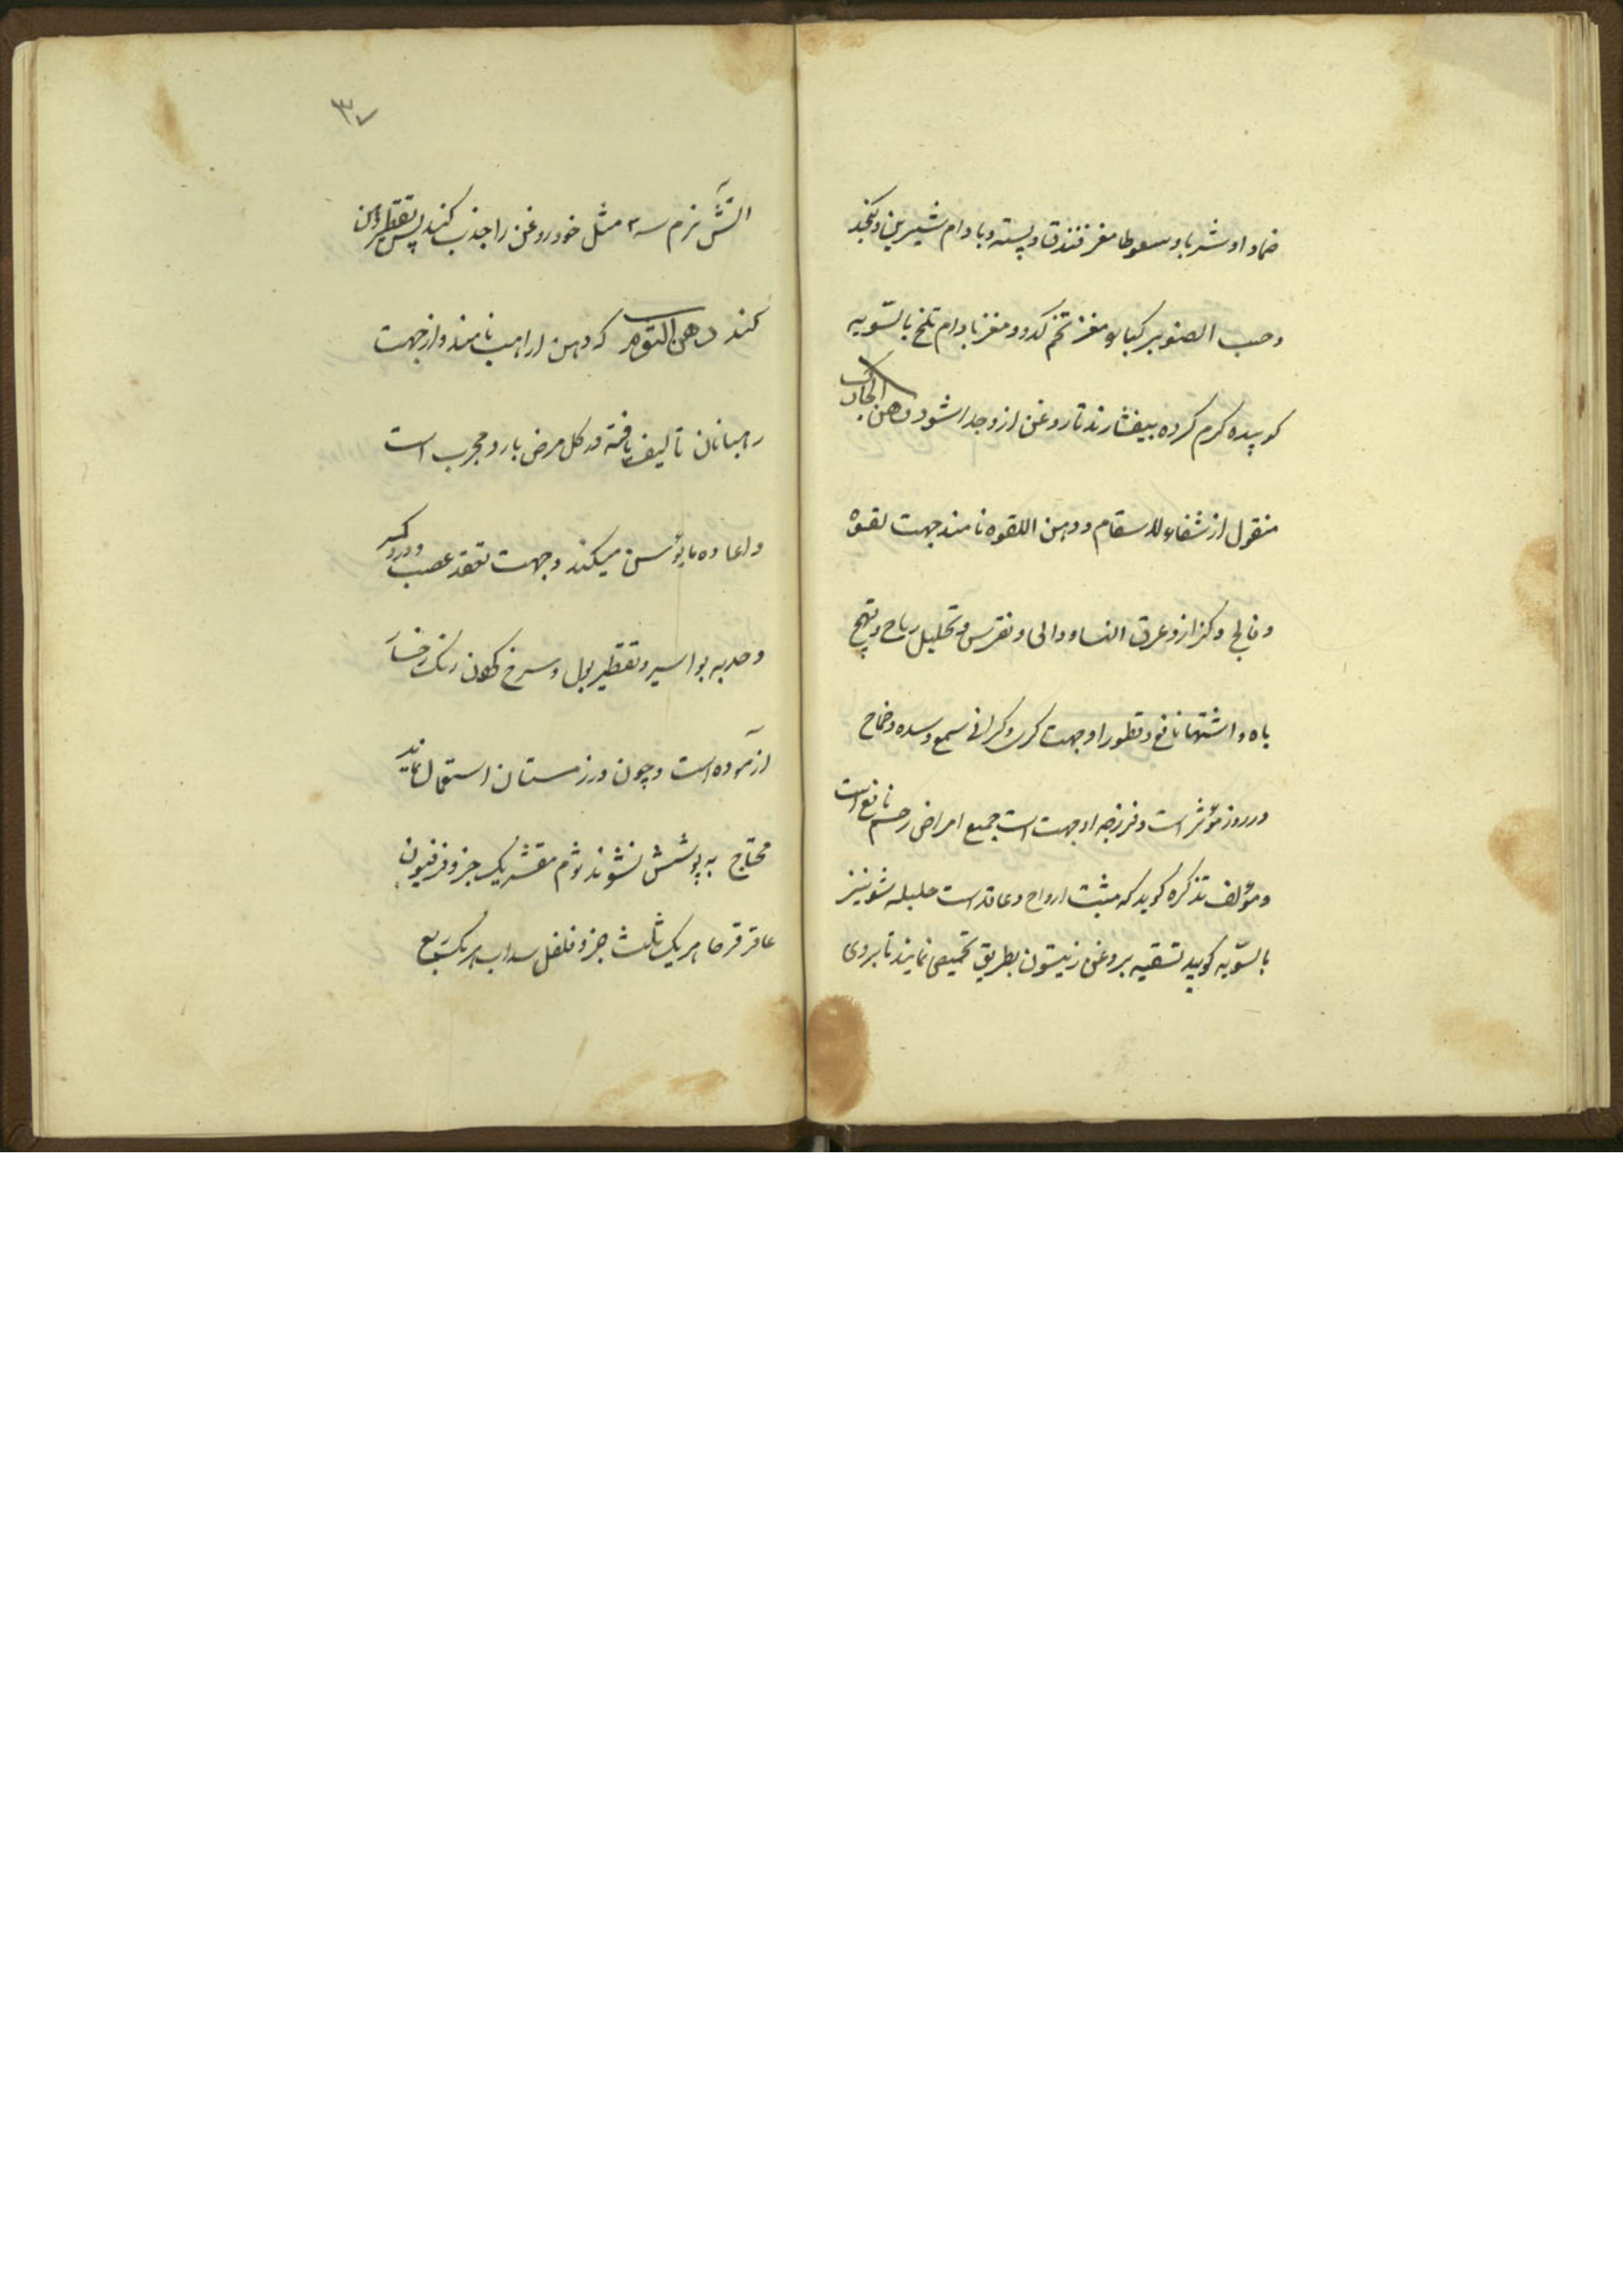 ضمادا و شربا و سعوطا مغز فندق و پسته و بادام شیرین و کنجد
و حب الصنوبر کبار و مغز تخم کدو و مغز بادام تلخ بالسّویه
کوبیده کرم کرده بیفشارند تا روغن ازو جدا شود دهن
منقول از شفاء الاسقام و دهن اللقوه نامند جهت لقوه
و فالج و کزاز و عرق النسا و دوالی و نقرس و تحلیل ریاح و تهیج
باه و اشتها نافع و قطور او جهت کری و کرانی سمع و سده صماخ
در روز مؤثر است و فرزجه او جهت جمیع امراض رحم نافع است
و مؤلف تذکره کوید که مثبت ارواح و عاقد است حلبه شونیز
بالسّویه کوبیده تسقیه بروغن زیتون بطریق تحمیص نمایند تا بروی
۳۷
آتش نرم سه مثل خود روغن را جذب کند پس تقطیر
کنند دهن الثوم که دهن الراهب نامند و از جهت
رهبانان تالیف یافته در کل مرض بارد مجرب است
و اعاده مایؤس میکند و جهت تعقد عصب و درد کمر
و حدبه بواسیر و تقطیر بول و سرخ کردن رنک رخسار
آزموده است و چون در زمستان استعمال نمایند
محتاج به پوشش نشوند ثوم مقشر یک جزو فرفیون
عاقرقرحا هر یک ثلث جزو فلفل سداب هر یک ربع